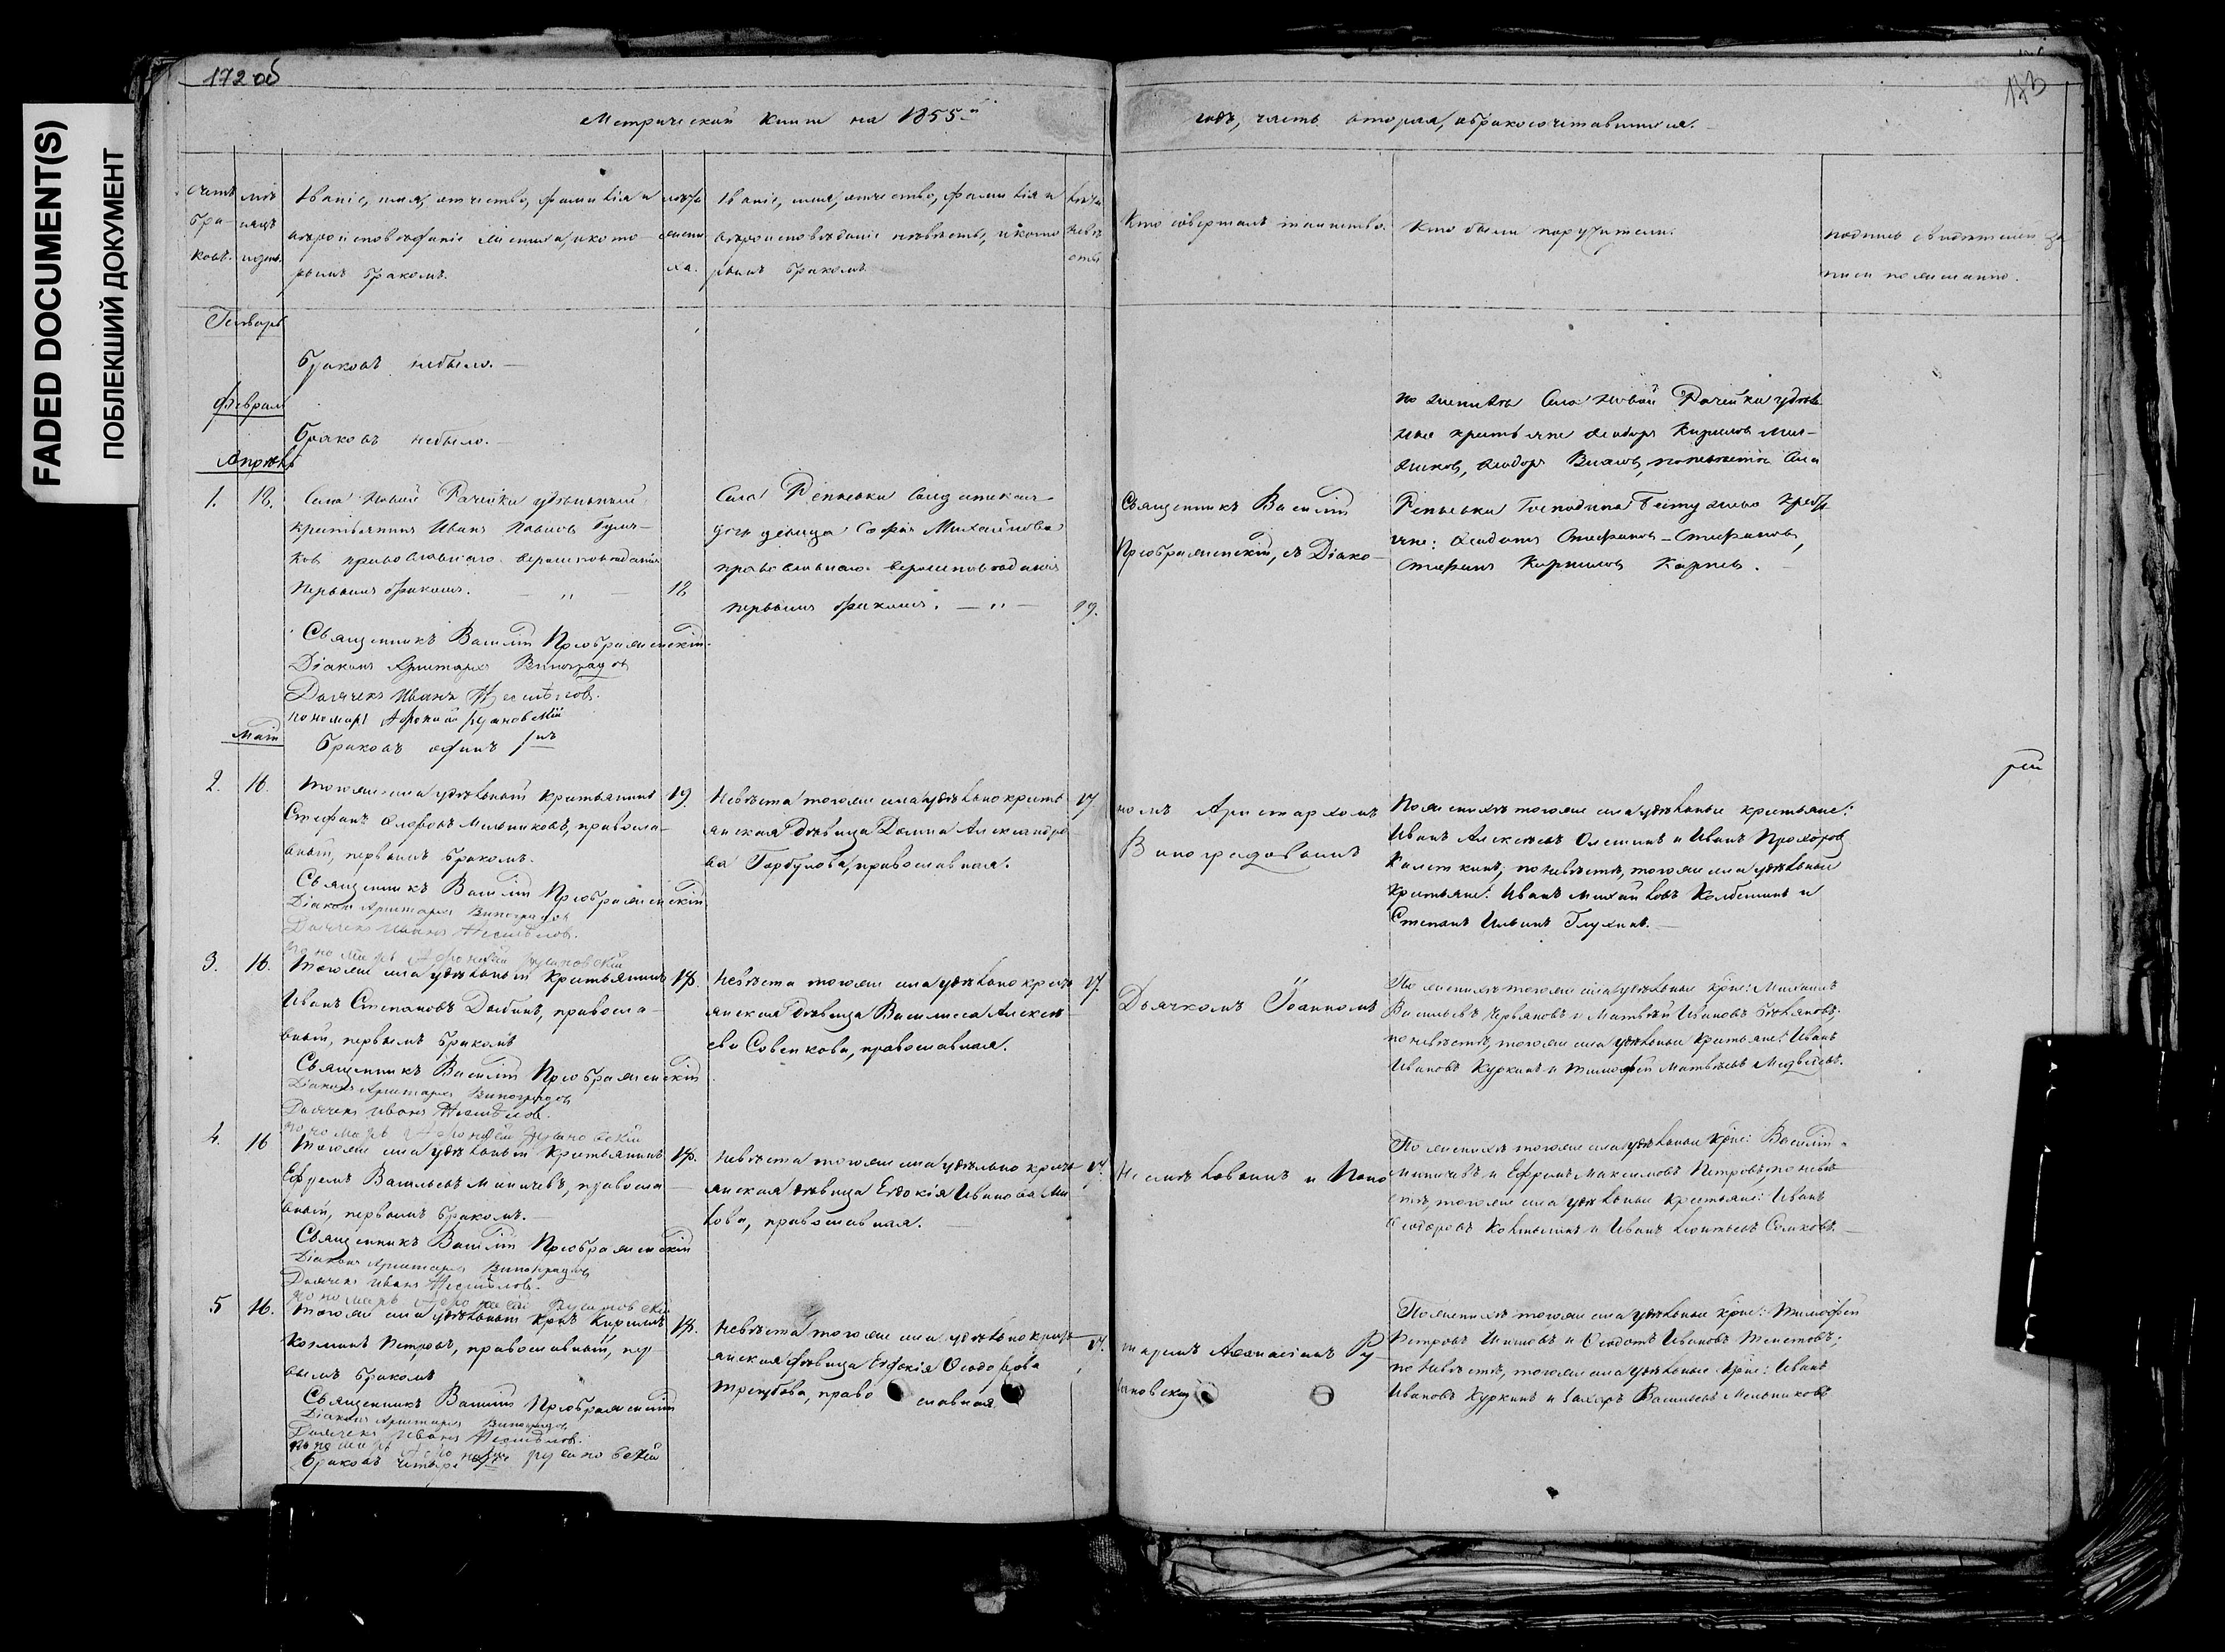 FADED DOCUMENT(S)
ПОБЛЕКШИЙ ДОКУМЕНТ
172 об
173
Метрической книги на 1855й
годъ, часть вторая, о бракосочетавшихся.
Счетъ браковъ.
мѣсяцъ и день.
Званіе, имя, отчество, фамилія и
вѣроисповѣданіе жениха, и кото
рымъ бракомъ.
лѣта жениха.
Званіе, имя, отчество, фамилія и
вѣроисповѣданіе невѣсты, и кото
рымъ бракомъ.
лѣта невѣсты
Кто совершалъ таинство.
Кто были поручители.
подпись свидѣтелей за
писи по желанію.
Генварь
Браковъ небыло.
Февраль
Браковъ небыло.
Апрѣль
1. 18.
Села Новой Рачейки удѣльный
крестьянинъ Иванъ Павловъ
ковъ православнаго вероисповедания
первымъ бракомъ. — „ — 18
Священникъ Василій Преображенскій.
Діаконъ Аристархъ Виноградовъ
Дьячекъ Иванъ Несмѣловъ.
пономарь Афонасий Русановский
Села Репьевки
дочь девица Софія Михайлова
православнаго вероисповедания
первымъ бракомъ. — „ — 19.
Священникъ Василій
Преображенскій, съ Діако-
по женихѣ Села Новой Рачейки удѣль
ные крестьяне Феодоръ Кириловъ
Феодоръ по невѣстѣ Села
Репьевки Господина крестья
яне: Степановъ - Степановъ,
Степанъ Корниловъ Карпов.
Май
Браковъ одинъ 1нъ
2. 16.
Тогоже села удѣльный крестьянинъ 19.
Стефанъ Мельниковъ, правосла-
вный, первымъ бракомъ.
Священникъ Василій Преображенскій
Діаконъ Аристархъ Виноградовъ
Дьячекъ Иванъ Несмѣловъ.
пономарь Афонасий Русановский
Невѣста тогоже села удѣльно кресть 17.
янская дѣвица Домна Александро
ва Горбунова, православная.
номъ Аристархомъ
Виноградовымъ
По женихѣ тогоже села удѣльные крестьяне:
Иванъ Алексѣевъ Олешинъ и Иванъ Прохоровъ
по невѣстѣ, тогоже села удѣльные
крестьяне: Иванъ Михайловъ и
Степанъ Ильинъ Глухинъ.
3. 16.
Тогоже села удѣльный крестьянинъ 18.
Иванъ Степановъ Дыбинъ, правосла-
вный, первымъ бракомъ
Священникъ Василій Преображенскій
Діаконъ Аристархъ Виноградовъ
Дьячекъ Иванъ Несмѣловъ.
пономарь Афонасий Русановский
Невѣста тогоже села удѣльно кресть 17.
янская дѣвица Василисса Алексѣ
ева Совенкова, православная.
Дьячкомъ Іоанномъ
По женихѣ тогоже села удѣльные крес: Михаилъ
Васильевъ и Матвѣй Ивановъ
по невѣстѣ, тогоже села удѣльные крестьяне: Иванъ
Ивановъ Куркинъ и Тимофей Матвѣевъ Медведевъ.
4. 16
Тогоже села удѣльный крестьянинъ 18.
Ефремъ Васильевъ Миничевъ, правосла
вный, первымъ бракомъ.
Священникъ Василій Преображенскій
Діаконъ Аристархъ Виноградовъ
Дьячекъ Иванъ Несмѣловъ.
пономарь Афонасий Русановский
Невѣста тогоже села удѣльно кресть 17.
янская дѣвица Евдокія Иванова
православная.
Несмѣловымъ и Поно
По женихѣ тогоже села удѣльные крес: Василій
Миничевъ и Ефремъ Максимовъ Петровъ, по невѣ
стѣ, тогоже села удѣльные крестьяне: Иванъ
Феодоровъ и Иванъ Леонтьевъ
5 16.
Тогоже села удѣльный крес. Кирилъ 18.
Козминъ Петровъ, православный, пер
вымъ бракомъ
Священникъ Василій Преображенскій
Діаконъ Аристархъ Виноградовъ
Дьячекъ Иванъ Несмѣловъ.
пономарь Афонасий Русановский
Браковъ четыре
Невѣста тогоже села удѣльно кресть 17.
янская дѣвица Евдокія Феодорова
православная.
маремъ Афанасіемъ Ру-
сановскимъ
По женихѣ тогоже села удѣльные крес: Тимофей
Петровъ и Феодотъ Ивановъ
по невѣстѣ, тогоже села удѣльные крес: Иванъ
Ивановъ Куркинъ и Захаръ Васильевъ Мельниковъ